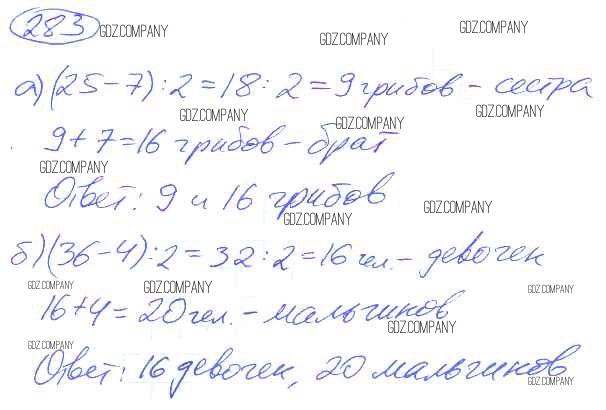 283 GDZ.COMPANY GDZ.COMPANY GDZ.COMPANY
а) (25-7):2=18:2=9 грибов - сестра
GDZ.COMPANY GDZ.COMPANY GDZ.COMPANY
9+7=16 грибов - брат
GDZ.COMPANY
Ответ: 9 и 16 грибов
GDZ.COMPANY GDZ.COMPANY
б) (36-4):2=32:2=16 чел. - девочек
GDZ.COMPANY GDZ.COMPANY GDZ.COMPANY
16+4=20 чел. - мальчиков
GDZ.COMPANY GDZ.COMPANY
Ответ: 16 девочек, 20 мальчиков
GDZ.COMPANY